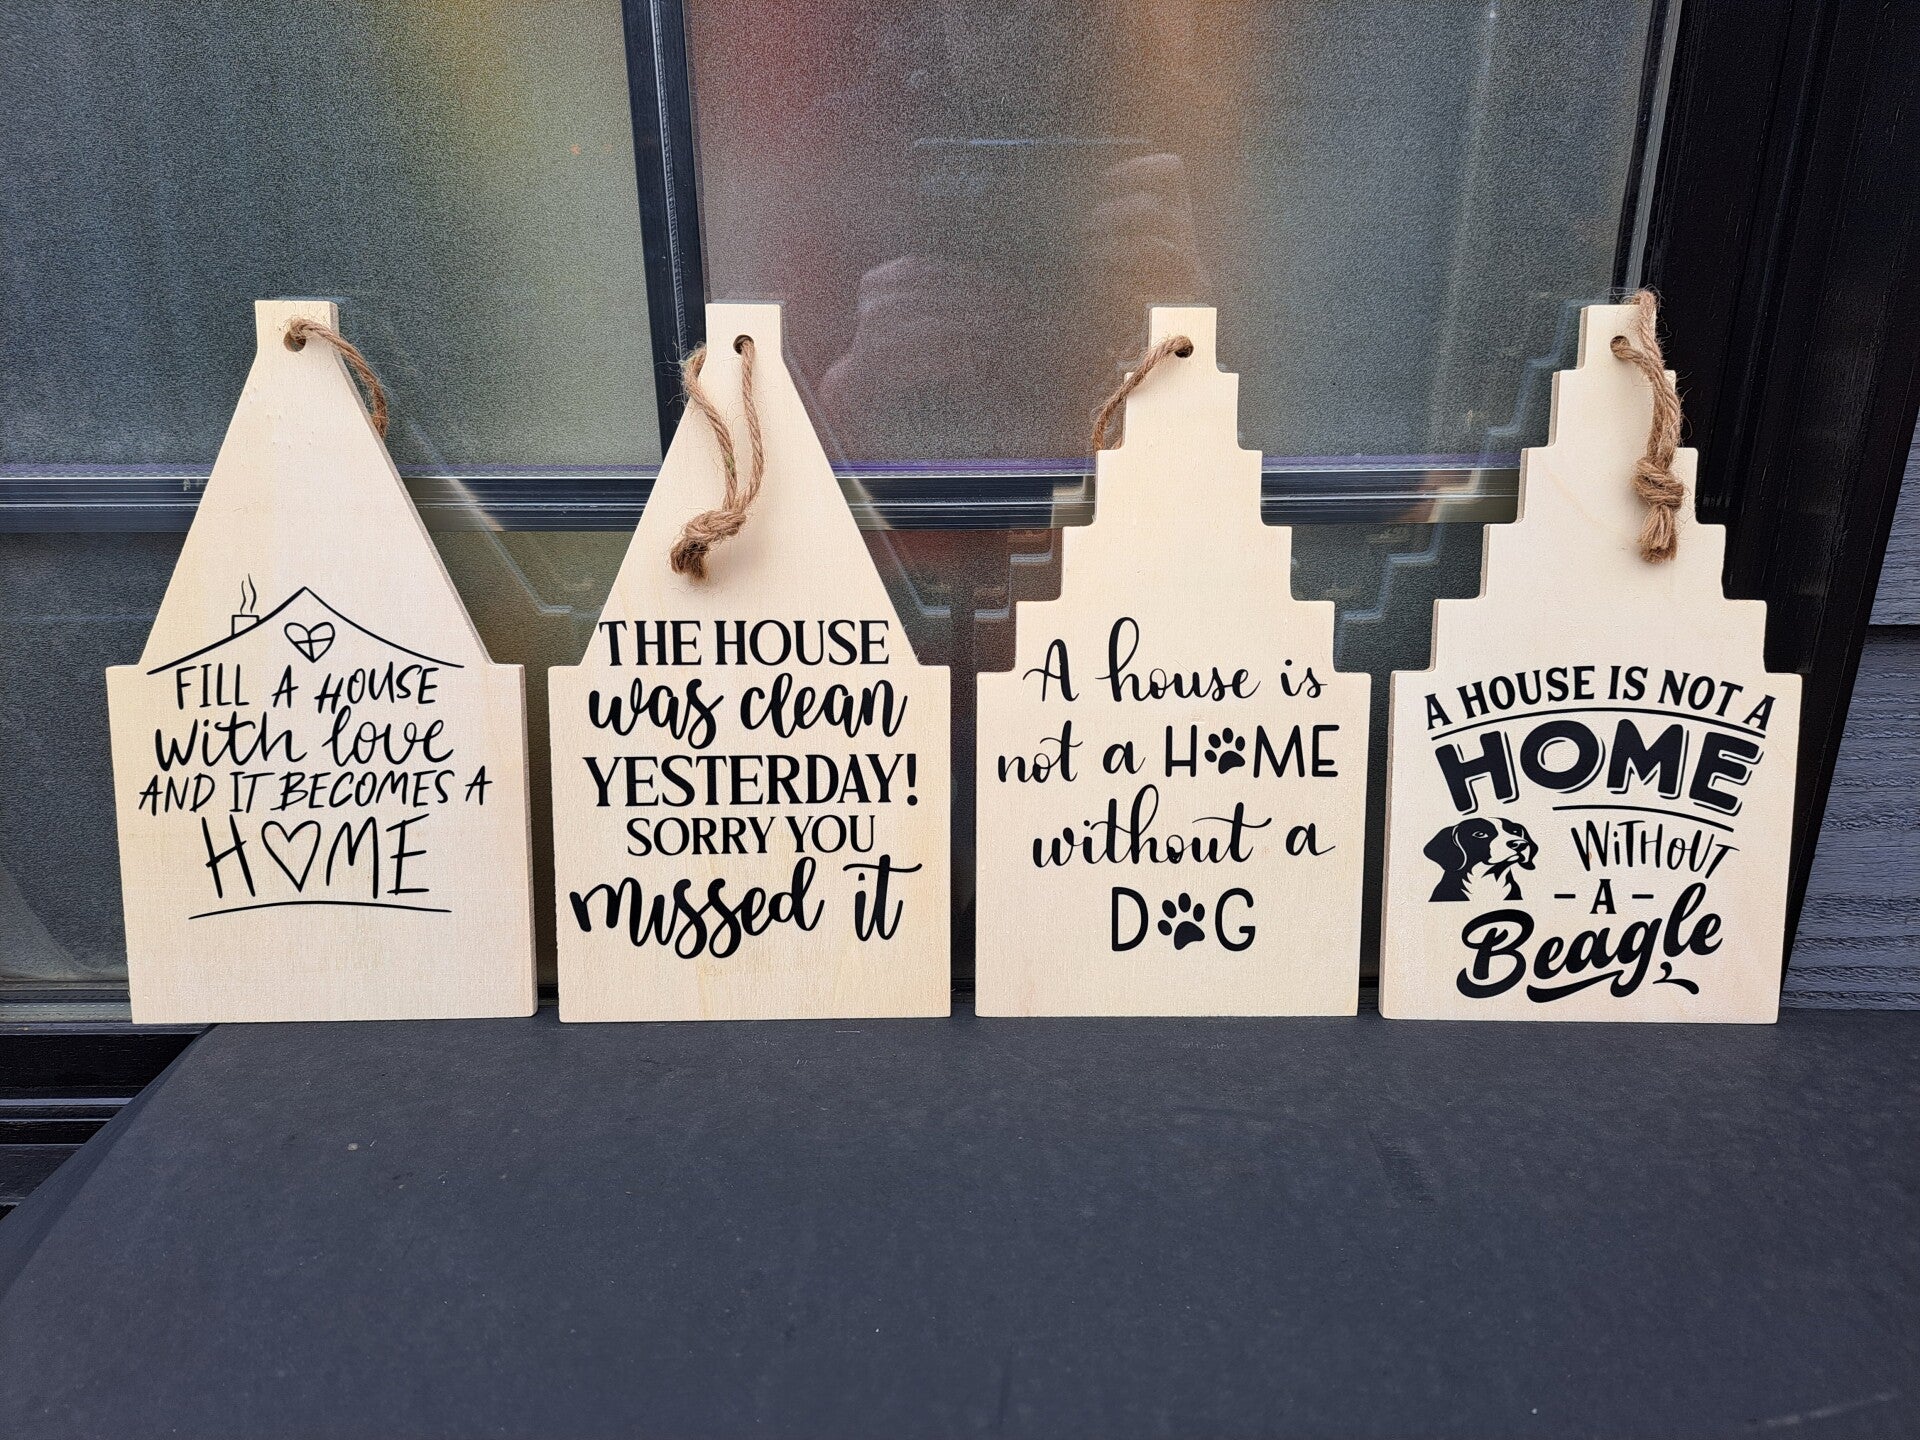 FILL A HOUSE
with love
AND IT BECOMES A
HOME
THE HOUSE
was clean
YESTERDAY!
SORRY YOU
missed it
A house is
not a HOME
without a
DOG
A HOUSE IS NOT A
HOME
WITHOUT
- A -
Beagle